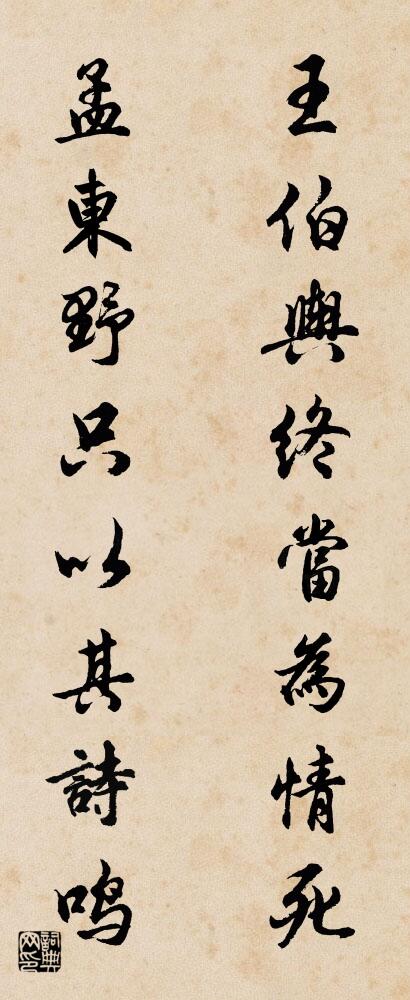 王伯輿終當為情死
孟東野只以其詩鳴
詞典网印